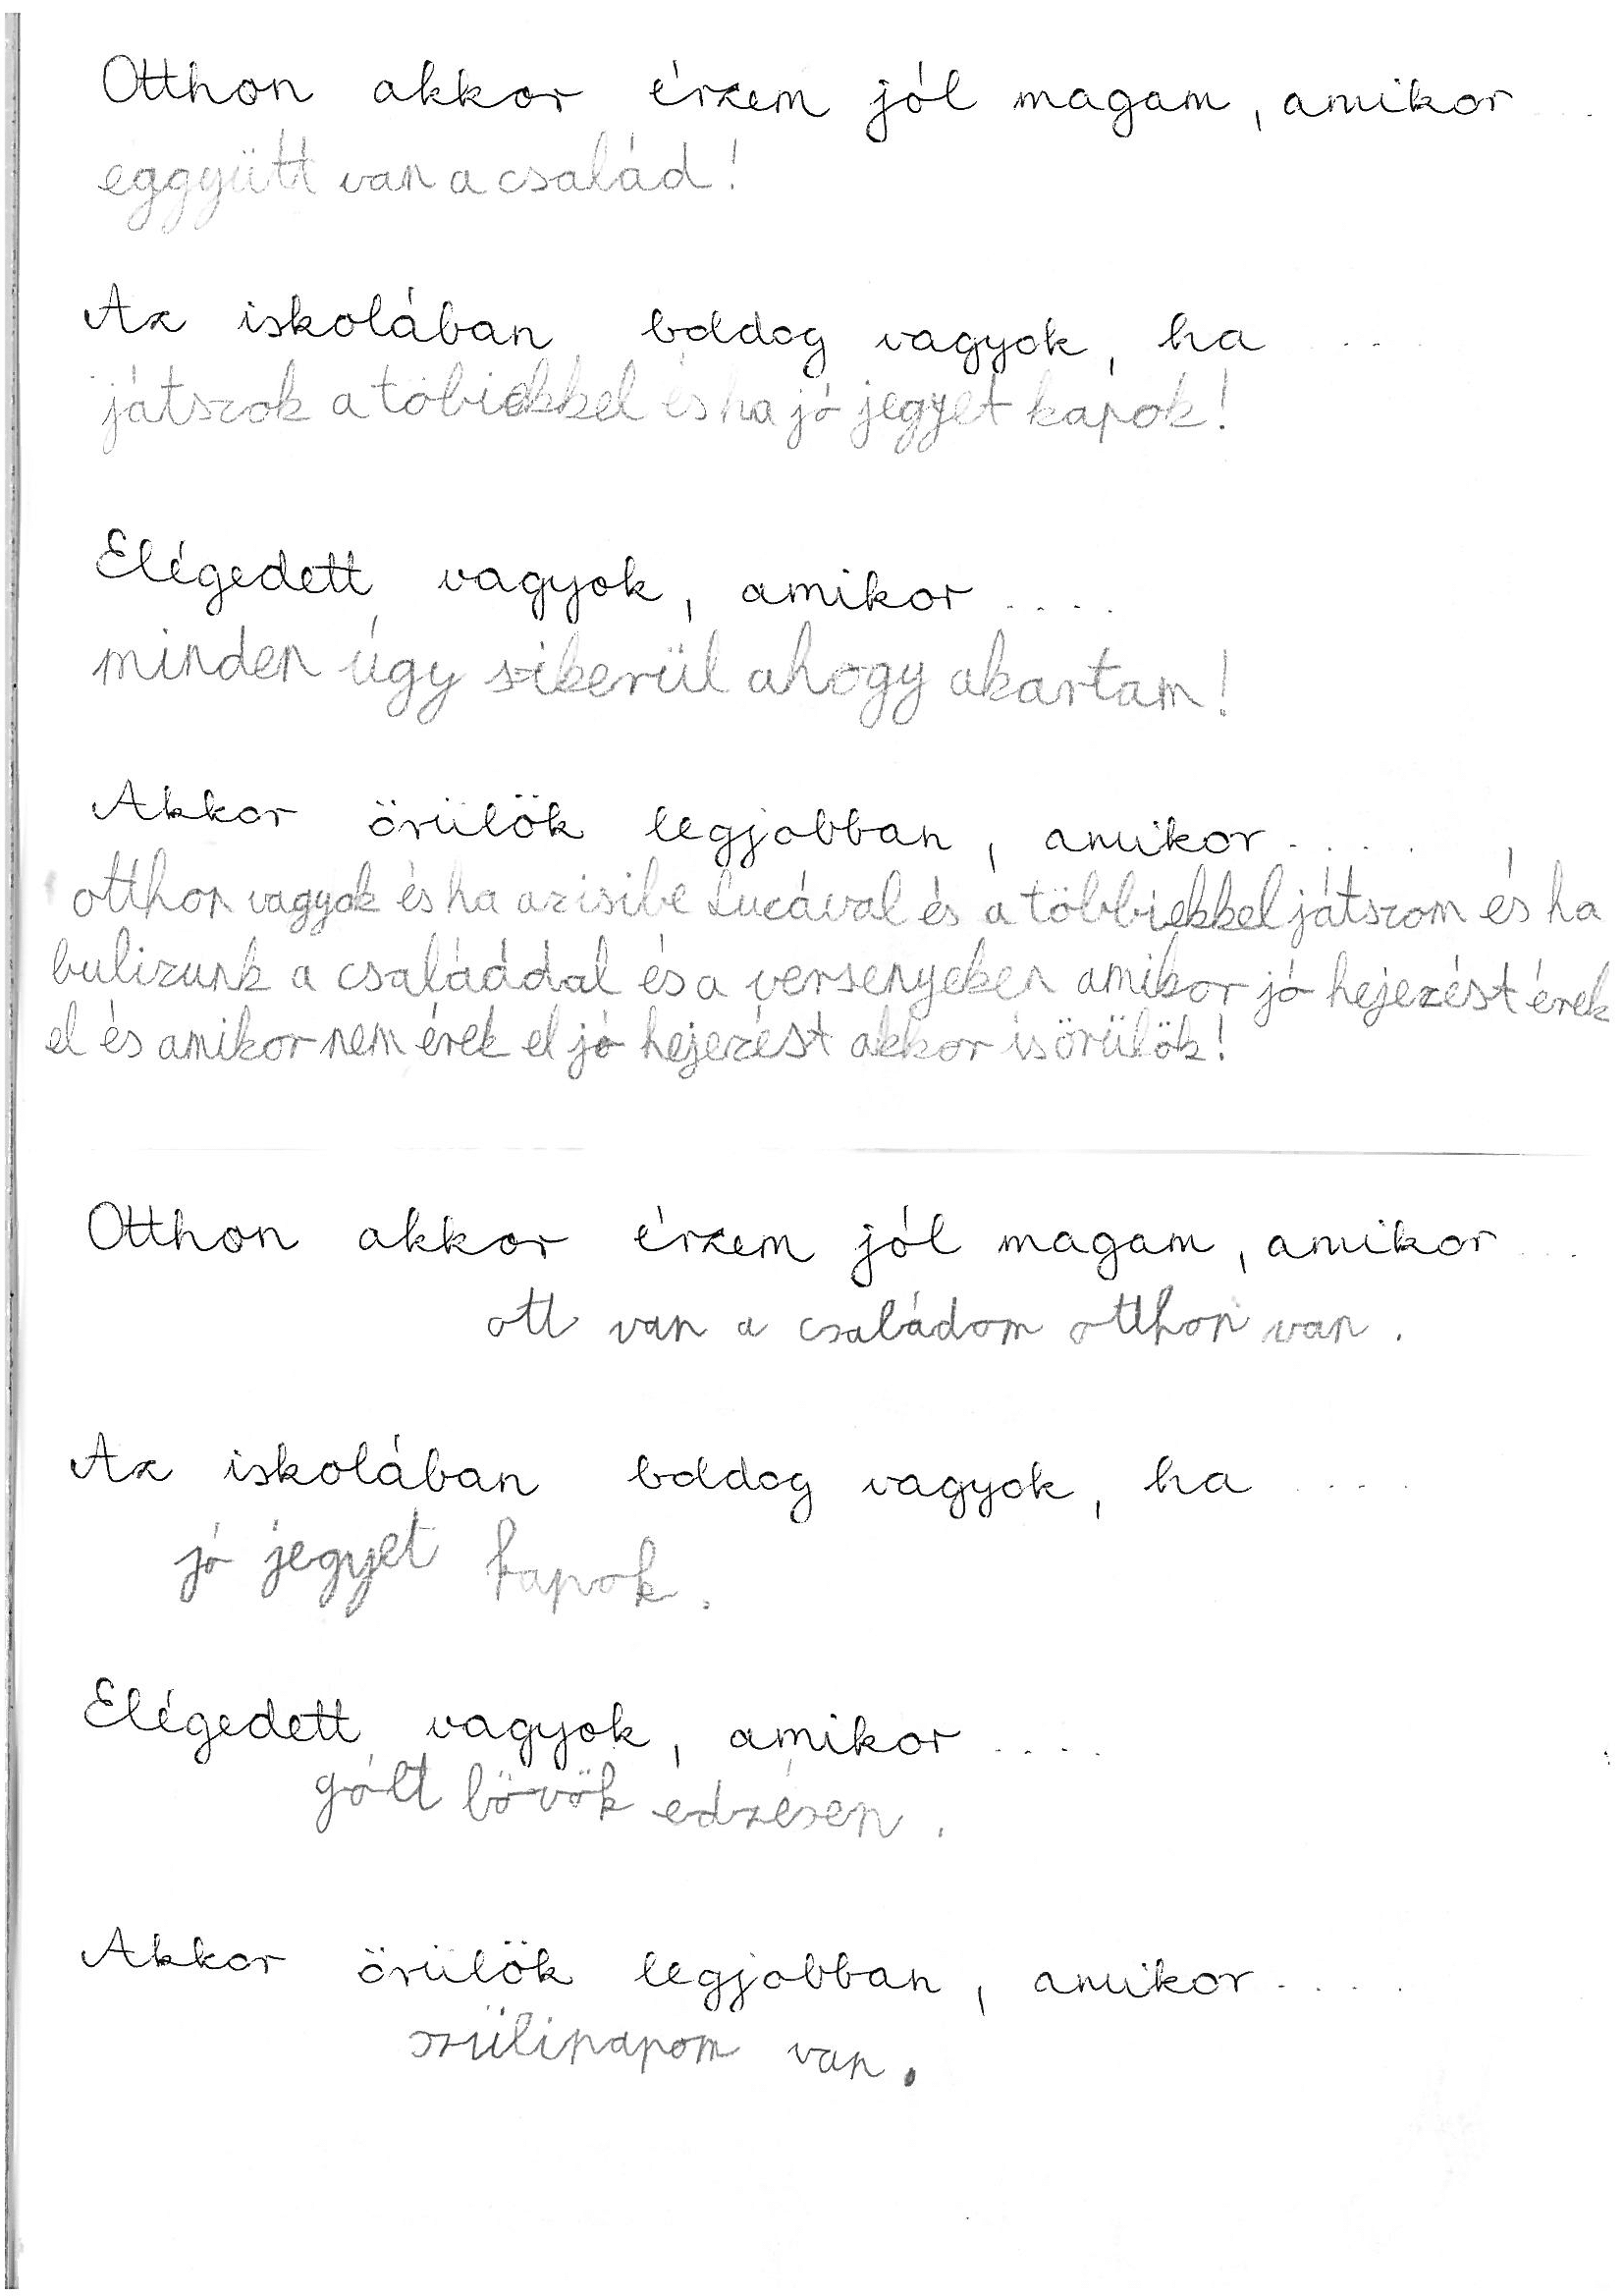 Otthon akkor érzem jól magam, amikor ...
eggyütt van a család!
Az iskolában boldog vagyok, ha ....
játszok a töbiekkel és ha jó jegyet kapok!
Elégedett vagyok, amikor ....
minden úgy sikerül ahogy akartam!
Akkor örülök legjobban, amikor ....
otthon vagyok és ha az isibe Lucával és a többiekkel játszom és ha
bulizunk a családdal és a versenyeken amikor jó hejezést érek
el és amikor nem érek el jó hejezést akkor is örülök!
Otthon akkor érzem jól magam, amikor ...
ott van a családom otthon van.
Az iskolában boldog vagyok, ha ....
jó jegyet kapok.
Elégedett vagyok, amikor ....
gólt lövök edzésen.
Akkor örülök legjobban, amikor ....
szülinapom van.